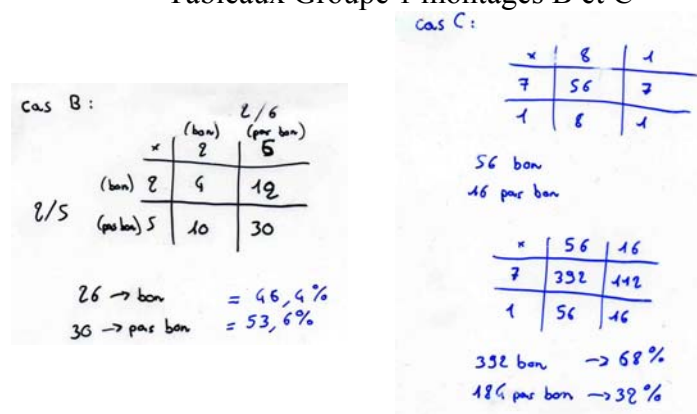 Tableaux Groupe 1 montages B et C
cas B :
2/6
(bon) (pas bon)
x 2 6
2/5
(bon) 2 4 12
(pas bon) 5 10 30
26 → bon = 46,4%
30 → pas bon = 53,6%
cas C :
x 8 1
7 56 7
1 8 1
56 bon
16 pas bon
x 56 16
7 392 112
1 56 16
392 bon → 68%
184 pas bon → 32%